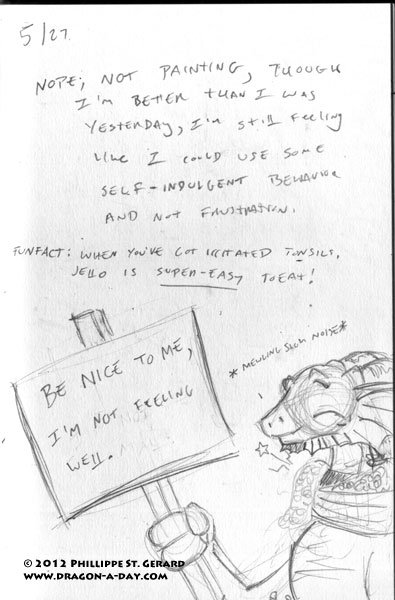 5/27.
NOPE; NOT PAINTING, THOUGH
I'M BETTER THAN I WAS
YESTERDAY, I'M STILL FEELING
LIKE I COULD USE SOME
SELF-INDULGENT BEHAVIOR
AND NOT FRUSTRATION.
FUNFACT: WHEN YOU'VE GOT IRRITATED TONSILS,
JELLO IS SUPER-EASY TO EAT!
*MEWLING SICK NOISE*
BE NICE TO ME,
I'M NOT FEELING
WELL.
© 2012 PHILLIPPE ST. GERARD
WWW.DRAGON-A-DAY.COM